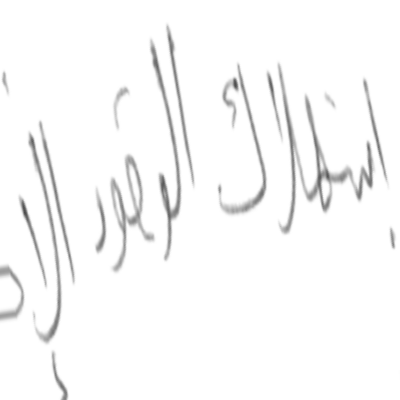 استهلاك الوقود